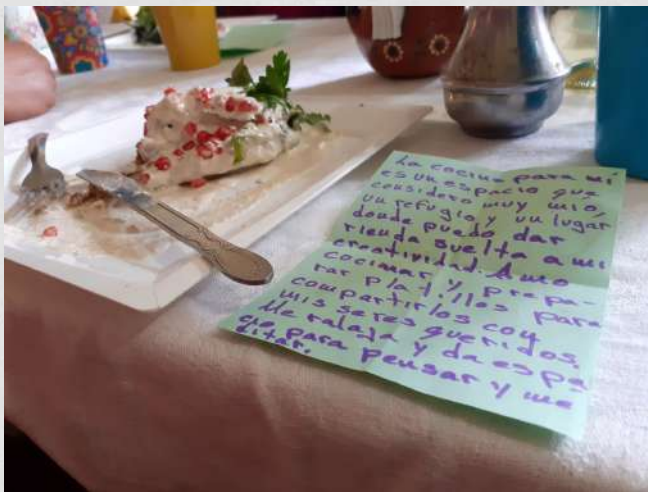 La cocina para mí
es un espacio que
considero muy mío,
un refugio y un lugar
donde puedo dar
rienda suelta a mi
creatividad. Amo
cocinar y prepa-
rar platillos para
compartirlos con
mis seres queridos.
Me relaja y da espa
cio para pensar y me
ditar.